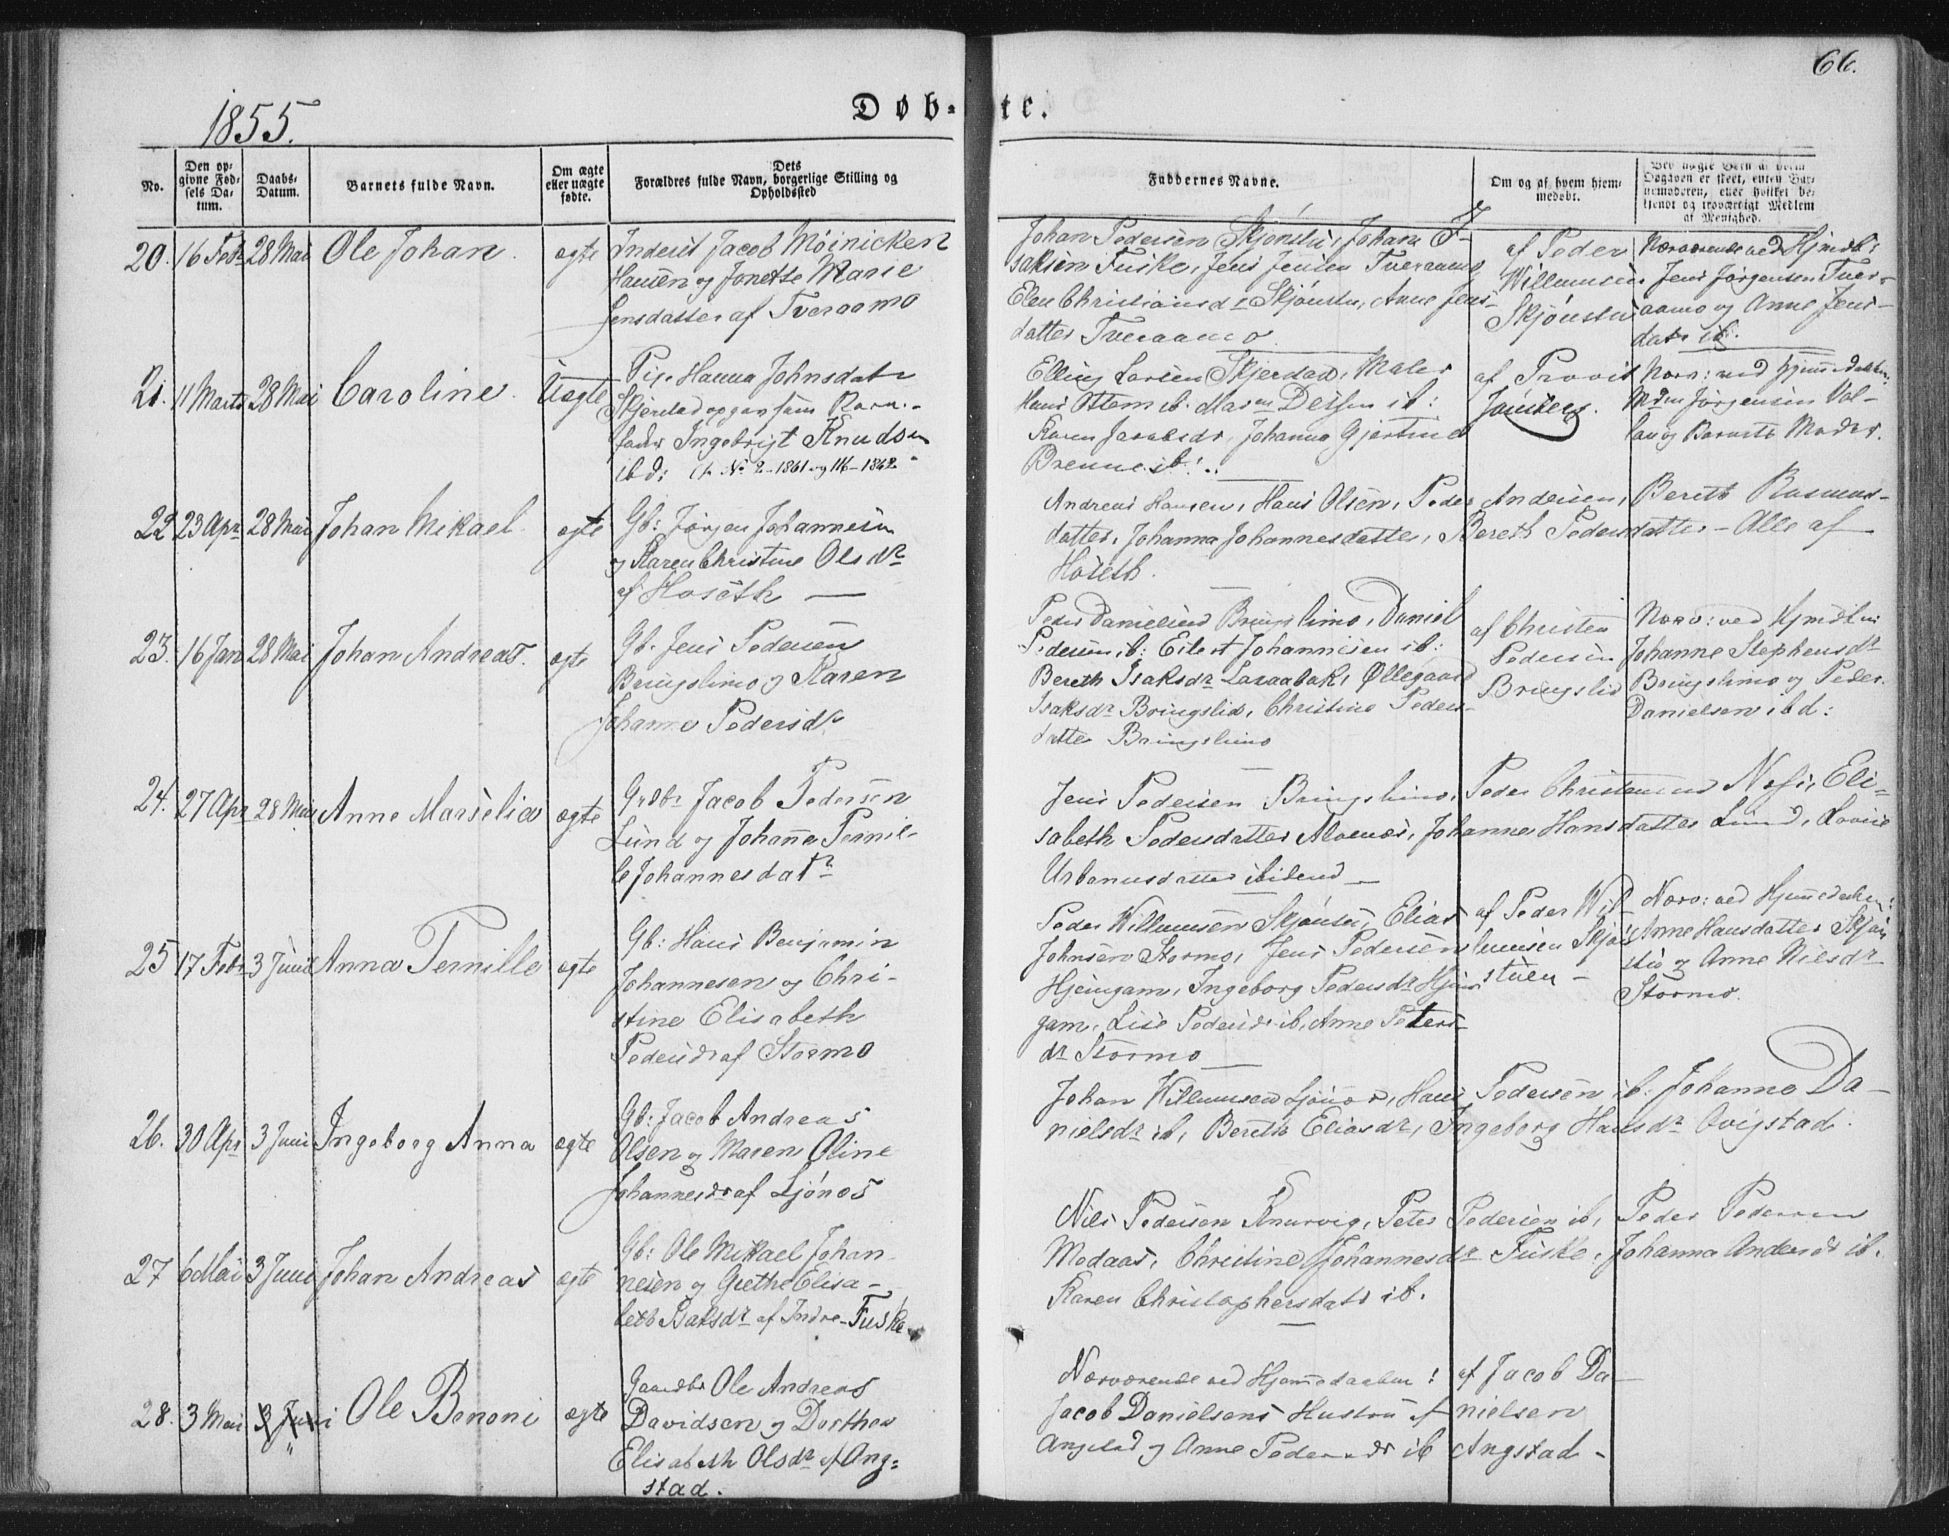 66.
1855.
Døb-te.
No.
Den opgivne Fødsels Datum.
Daabs-Datum.
Barnets fulde Navn.
Om ægte eller uægte fødte.
Dets Forældres fulde Navn, borgerlige Stilling og Opholdssted
Faddernes Navne.
Om og af hvem hjemmedøbt.
20. 16 Febr 28 Mai Ole Johan ægte
Inderst Jacob Møinicken
Hansen og Jonette Marie
Jensdatter af Tveraamo
Johan Pedersen Skjønstu, Johan I-
saksen Fuske, Jens Jensen Tveraamo
Elen Christiansdr Skjønstu, Anne Jens-
datter Tveraamo
af Peder
Willumsen
Skjønstu
Nærværende ved Hjmdb:
Jens Jørgensen Tver-
aamo og Anne Jens-
datr ib.
21. 11 Marts 28 Mai Caroline Uægte
Pige Hanna Johnsdatr
Skjerstad opgav som Barne-
fader Ingebrigt Knudsen
ibd: (k No 2-1861 og 116-1862
Elling Larsen Skjerstad, Maler
Hans Ottem ib.
Karen Jacobsdr, Johanna Gjertine
Brenne ib:
af Provst
Nærv: ved Hjemmedaaben:
Jørgensen Val-
og Barnets Moder.
22 23 Apr 28 Mai Johan Mikael ægte
Gb: Jørgen Johannesen
og Karen Christine Olsdr
af Hoseth
Andreas Hansen, Hans Olsen, Peder Andersen, Bereth Rasmus-
datter, Johanna Johannesdatter, Bereth Pedersdatter - Alle af
Hoseth.
23. 16 Jan 28 Mai Johan Andreas. ægte
Gb. Jens Pedersen
Bringslimo og Karen
Johanna Pedersdr
Peder Danielsen Bringslimo, Daniel
Pedersen ib: Eilert Johannesen ib:
Bereth Isaksdr Laxaabak, Øllegaard
Isaksdr Bringslid, Christine Peders-
datter Bringslimo
af Christen
Pedersen
Bringslid
Nærv: ved Hjmdbn
Johanne Stephensdr
Bringslimo og Peder
Danielsen ibd:
24. 27 Apr 28 Mai Anne Marselia ægte
Grdbr Jacob Pedersen
Lund og Johanna Pernil-
le Johannesdatr
Jens Pedersen Bringslimo, Peder Christensen Næss, Eli-
sabeth Pedersdatter Alvenes, Johanna Hansdatter Lund, Lovise
Urbanusdatter ibidend
25 17 Febr 3 Juni Anna Pernille ægte
Gb: Hans Benjamin
Johannesen og Chri-
stine Elisabeth
Pedersdr af Stormo
Peder Willumsen Skjønstu, Elias
Johnsen Stormo, Jens Pedersen
Hjemgam, Ingeborg Pedersdr Hjem-
gam, Lise Pedersdr ib, Anne Peters-
dr Stormo
af Peder Wil-
lumsen Skjøn-
stuen -
Nærv: ved Hjemmedaaben:
Anne Hansdatter Skjøn-
stu og Anne Nielsdr
Stormo.
26. 30 Apr 3 Juni Ingeborg Anna ægte
Gb: Jacob Andreas
Olsen og Maren Oline
Johannesdr af Ljønes
Johan Willumsen Ljønes, Hans Pedersen ib: Johanna Da-
nielsdr ib, Bereth Eliasdr, Ingeborg Hansdr Øvigstad.
27 6 Mai 3 Juni Johan Andreas ægte
Gb: Ole Mikael Johan-
nesen og Grethe Elisa-
beth Isaksdr af Indre-Fuske
Nils Pedersen Knarvig, Peter Pedersen ib, Peder Pedersen
Modaas, Christine Johannesdr Fuske, Johanna Andersdr ib.
Karen Christophersdatr ib.
28. 3 Mai 3 Juni Ole Benoni ægte
Gaardbr Ole Andreas
Davidsen og Dorthea
Elisabeth Olsdr af Ang-
stad.
Nærværende ved Hjemmedaaben:
Jacob Danielsens Hustru af
Angstad og Anne Pedersdr ib
af Jacob Da-
nielsen
Angstad -